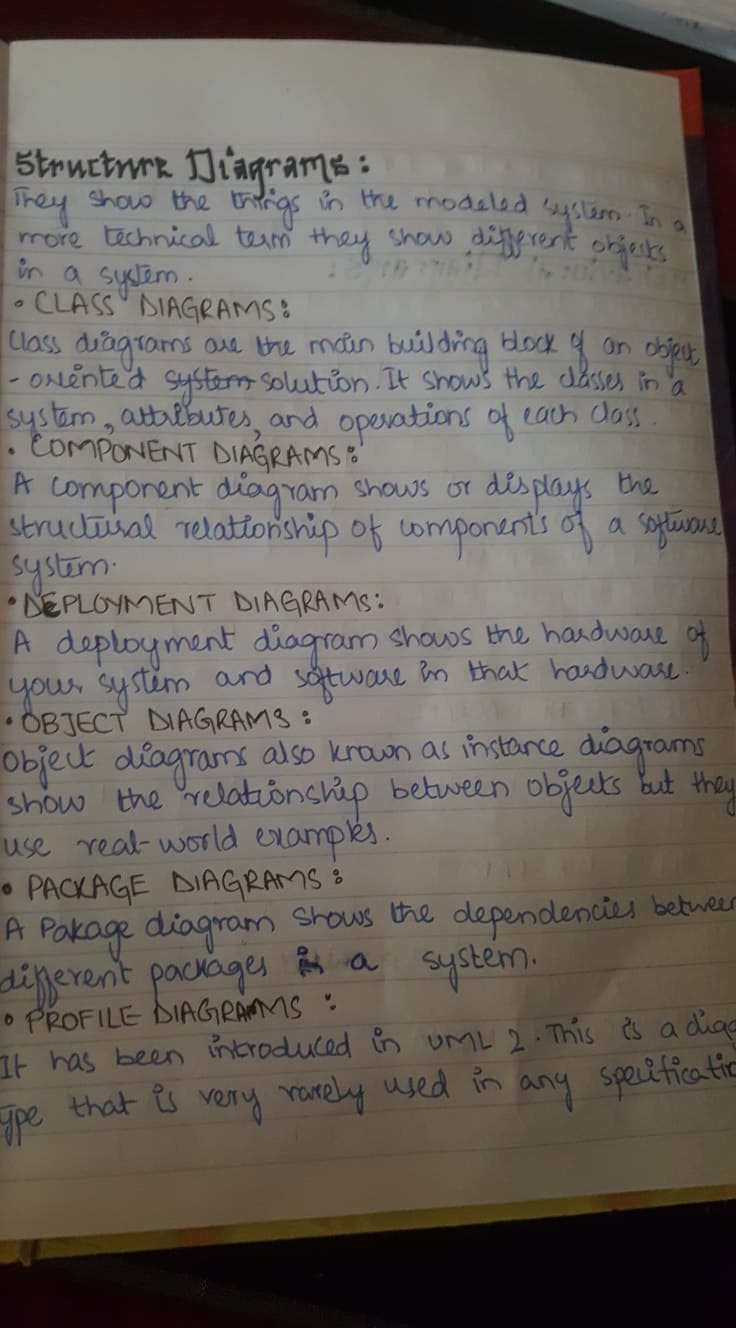 Structure Diagrams:
They show the things in the modeled system. In a
more technical term they show different objects
in a system.
• CLASS DIAGRAMS:
Class diagrams are the main building block of an object
-oriented system solution. It shows the classes in a
system, attributes, and operations of each class.
• COMPONENT DIAGRAMS:
A component diagram shows or displays the
structural relationship of components of a software
system.
• DEPLOYMENT DIAGRAMS:
A deployment diagram shows the hardware of
your system and software in that hardware.
• OBJECT DIAGRAMS:
Object diagrams also known as instance diagrams
show the relationship between objects but they
use real-world examples.
• PACKAGE DIAGRAMS:
A Pakage diagram shows the dependencies between
different packages in a system.
• PROFILE DIAGRAMS:
It has been introduced in UML 2. This is a diag
ype that is very rarely used in any specificatio